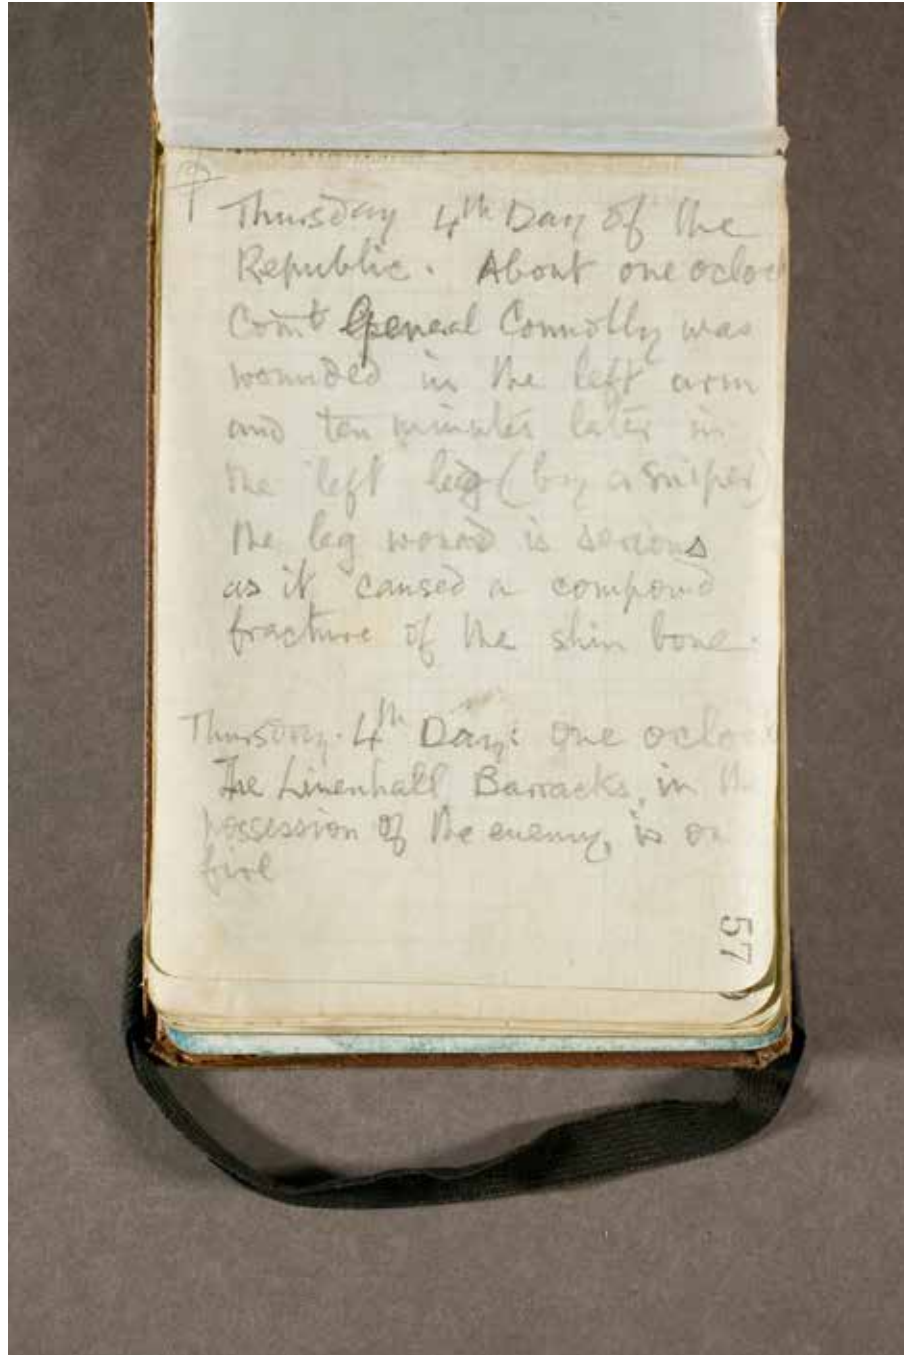 Thursday 4th Day of the
Republic. About one ocloc
Comt General Connolly was
wounded in the left arm
and ten minutes later in
the left leg (by a sniper)
the leg wound is serious
as it caused a compound
fracture of the shin bone.
Thursday. 4th Day: One oclock
The Linenhall Barracks, in the
possession of the enemy, is on
fire
57